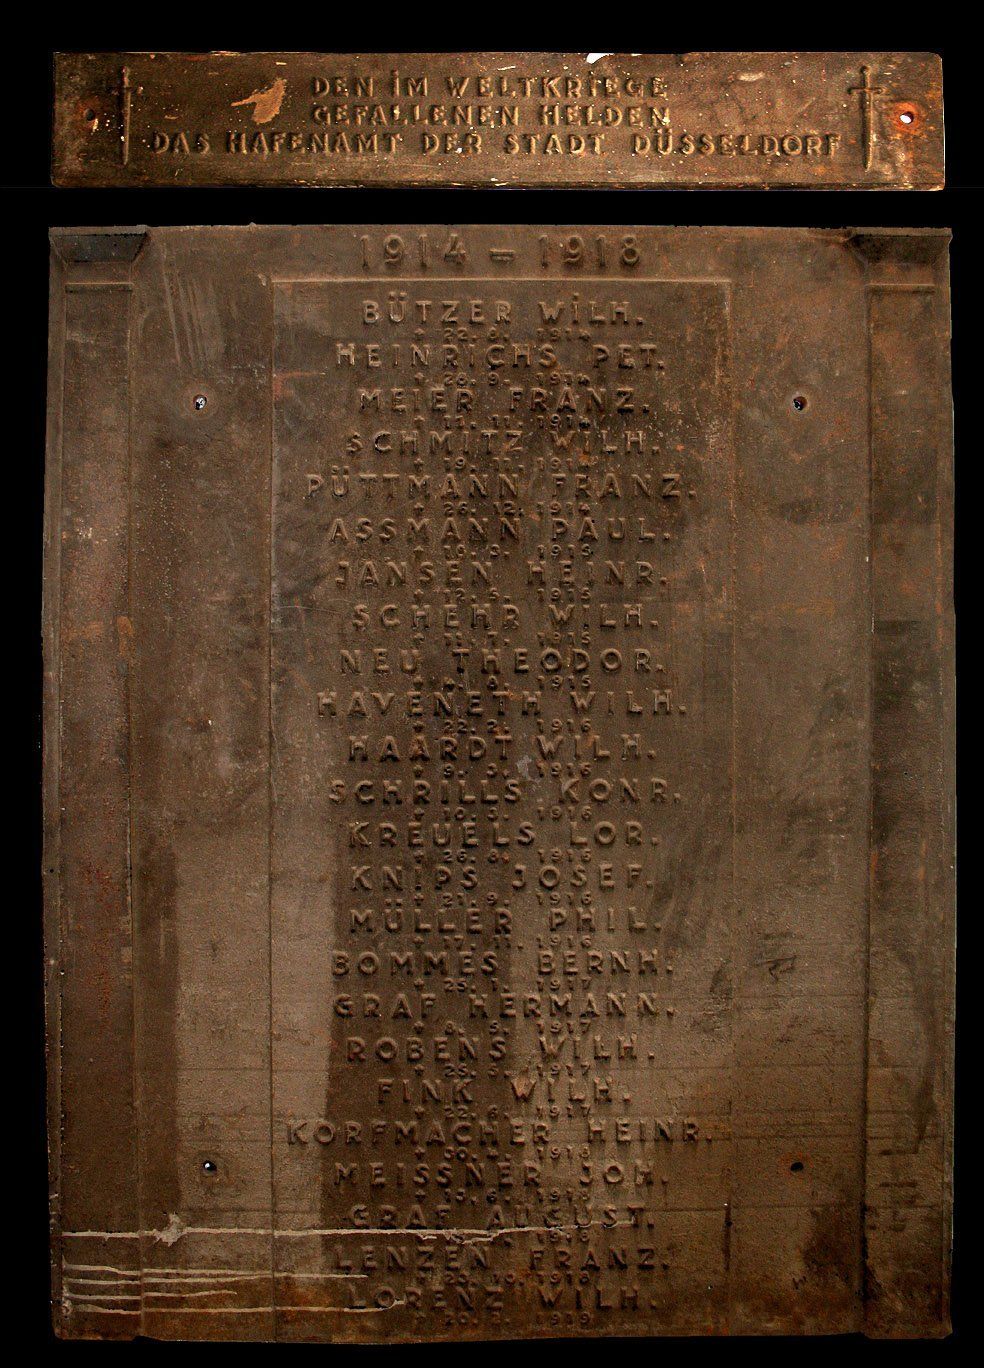 DEN IM WELTKRIEGE
GEFALLENEN HELDEN
DAS HAFENAMT DER STADT DÜSSELDORF
1914 – 1918
BÜTZER WILH.
✝ 22. 8. 1914
HEINRICHS PET.
✝ 26. 9. 1914
MEIER FRANZ.
✝ 11. 11. 1914
SCHMITZ WILH.
✝ 19. 11. 1914
PÜTTMANN FRANZ.
✝ 26. 12. 1914
ASSMANN PAUL.
✝ 3. 1915
JANSEN HEINR.
✝ 12. 5. 1915
SCHEHR WILH.
✝ 11. 7. 1915
NEU THEODOR.
✝ 8. 1915
HAVENETH WILH.
✝ 22. 2. 1916
HAARDT WILH.
✝ 9. 3. 1916
SCHRILLS KONR.
✝ 10. 3. 1916
KREUELS LOR.
✝ 26. 8. 1916
KNIPS JOSEF.
✝ 21. 9. 1916
MÜLLER PHIL.
✝ 17. 11. 1916
BOMMES BERNH.
✝ 25. 1. 1917
GRAF HERMANN.
✝ 8. 5. 1917
ROBENS WILH.
✝ 25. 5. 1917
FINK WILH.
✝ 22. 6. 1917
KORFMACHER HEINR.
✝ 30. 4. 1918
MEISSNER JOH.
✝ 6. 1918
GRAF AUGUST.
✝ 1918
LENZEN FRANZ.
✝ 10. 1918
LORENZ WILH.
✝ 20. 2. 1919